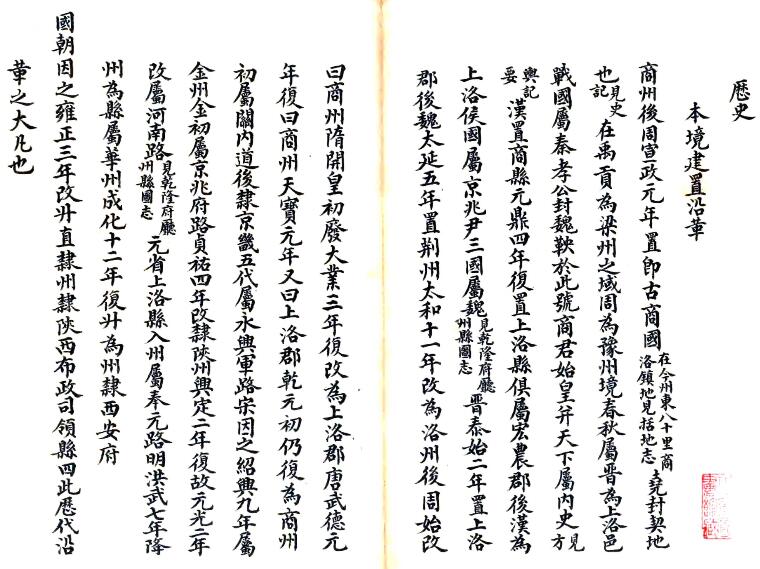 歷史
本境建置沿革
商州後周宣政元年置卽古商國在今州東八十里商洛鎮地見括地志堯封契地
也見史記在禹貢為梁州之域周為豫州境春秋屬晉為上洛邑
戰國屬秦孝公封魏鞅於此號商君始皇幷天下屬内史見方
輿記要漢置商縣元鼎四年復置上洛縣俱屬宏農郡後漢為
上洛侯國屬京兆尹三國屬魏見乾隆府廳州縣圖志晉泰始二年置上洛
郡後魏太延五年置荆州太和十一年改為洛州後周始改
曰商州隋開皇初廢大業三年復改為上洛郡唐武德元
年復曰商州天寶元年又曰上洛郡乾元初仍復為商州
初屬關内道後隸京畿五代屬永興軍路宋因之紹興九年屬
金州金初屬京兆府路貞祐四年改隸陝州興定二年復故元光二年
改屬河南路見乾隆府廳州縣圖志元省上洛縣入州屬奉元路明洪武七年降
州為縣屬華州成化十二年復升為州隸西安府
國朝因之雍正三年改升直隸州隸陝西布政司領縣四此歷代沿
革之大凡也